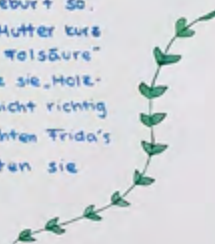 so.
Mutter kurz
"Folsäure"
sie „Holz-
nicht richtig
hten Frida's
ten sie